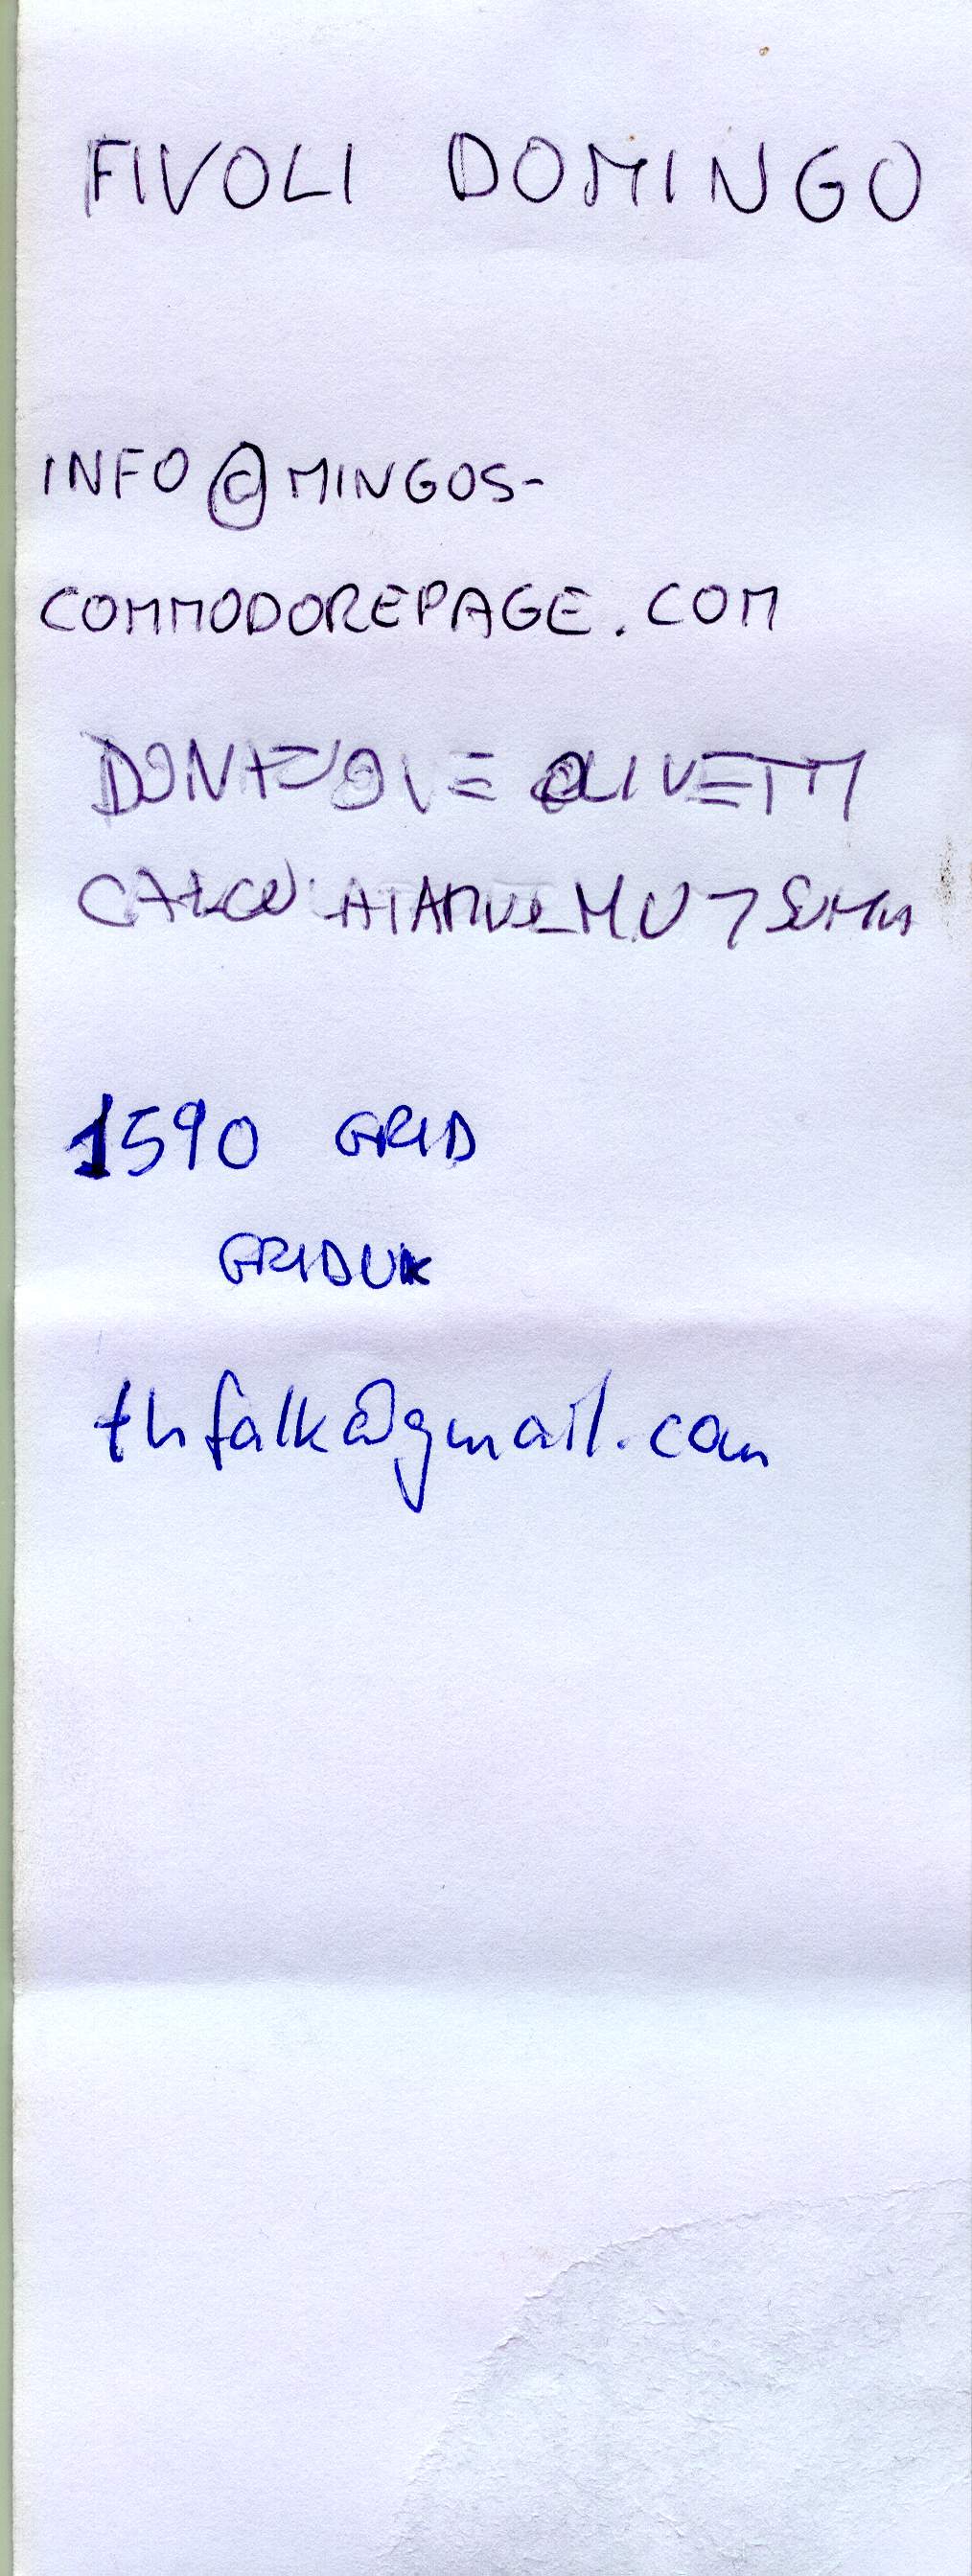 FIVOLI DOMINGO
INFO@MINGOS-
COMMODOREPAGE.COM
DONAZIONE OLIVETTI
SUMMA
1590 GRID
GRIDUK
thfalk@gmail.com